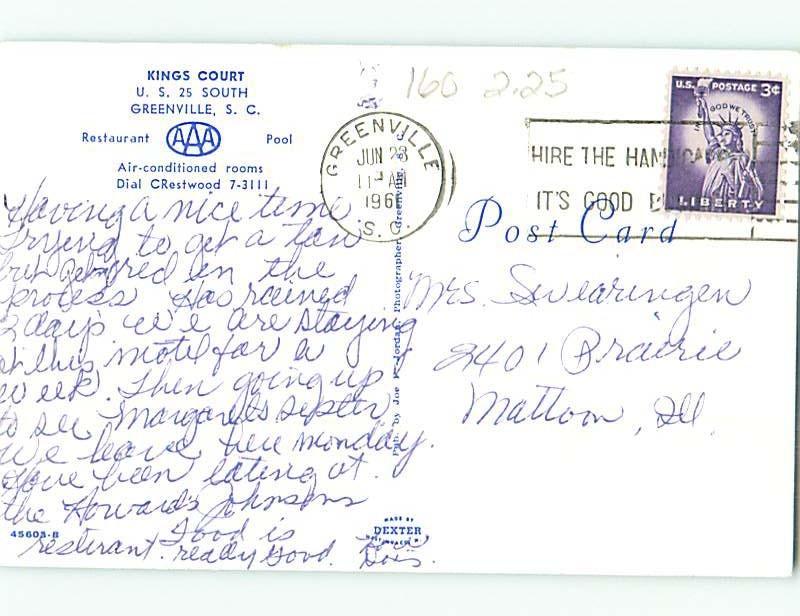 KINGS COURT
U. S. 25 SOUTH
GREENVILLE, S. C.
Restaurant AAA Pool
Air-conditioned rooms
Dial CRestwood 7-3111
Having a nice time
Trying to get a tan
but get red in the
process Has rained
2 days we are staying
at this motel for a
week. Then going up
to see Margarets sister
We leave here Monday.
Have been eating at
the Howards Johnsons
resterant. Food is
really good.
Dois.
45603-B
160 2.25
GREENVILLE
JUN 28
11 AM
196
S. C.
HIRE THE HANDICAPPED
IT'S GOOD B
U.S. POSTAGE 3¢
IN GOD WE TRUST
LIBERTY
Post Card
Mrs. Swearingen
2401 Prairie
Mattoon, Ill.
Pub. by Joe Jordan, Photographer, Greenville, S. C.
MADE BY
DEXTER